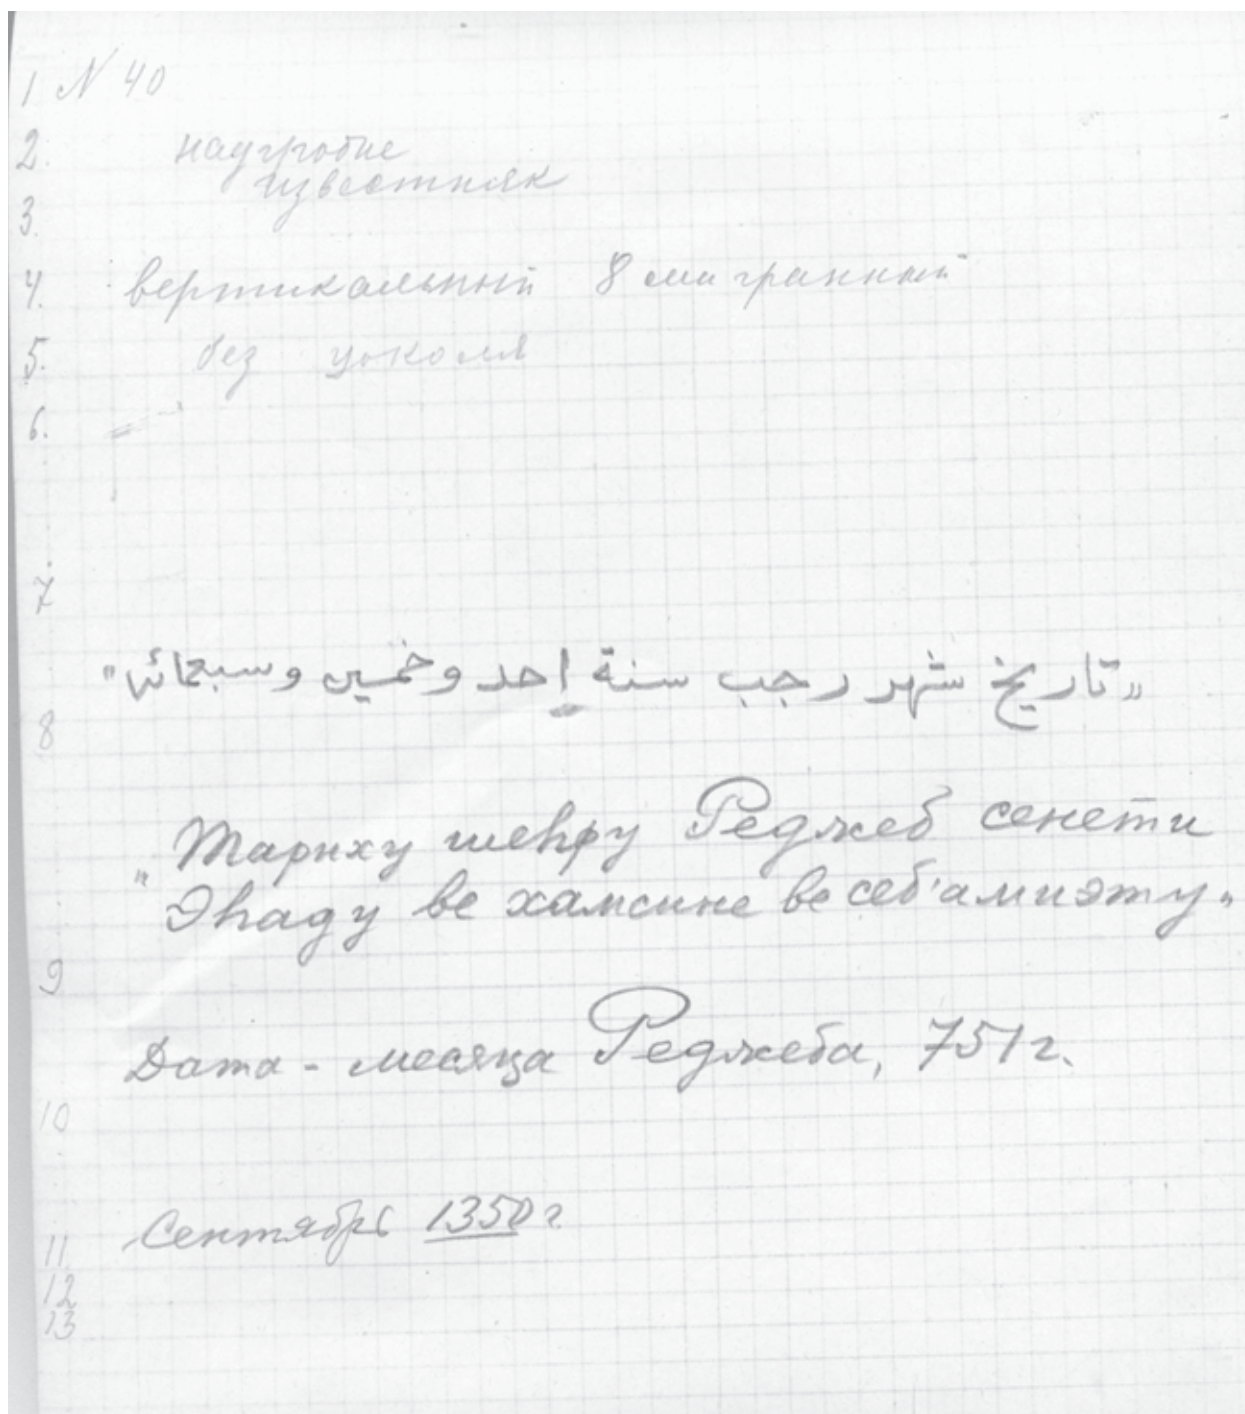 1 N 40
2. надгробие
известняк
3.
4. вертикальный 8 ми гранный
5. без цоколя
6.
7
„تاريخ شهر رجب سنة إحد وخمسين وسبعمائة"
8
„Тариху шеhру Реджеб сенети
Эhаду ве хамсине ве себ'амиэту"
9
Дата - месяца Реджеба, 751 г.
10
Сентябрь 1350 г
11
12
13